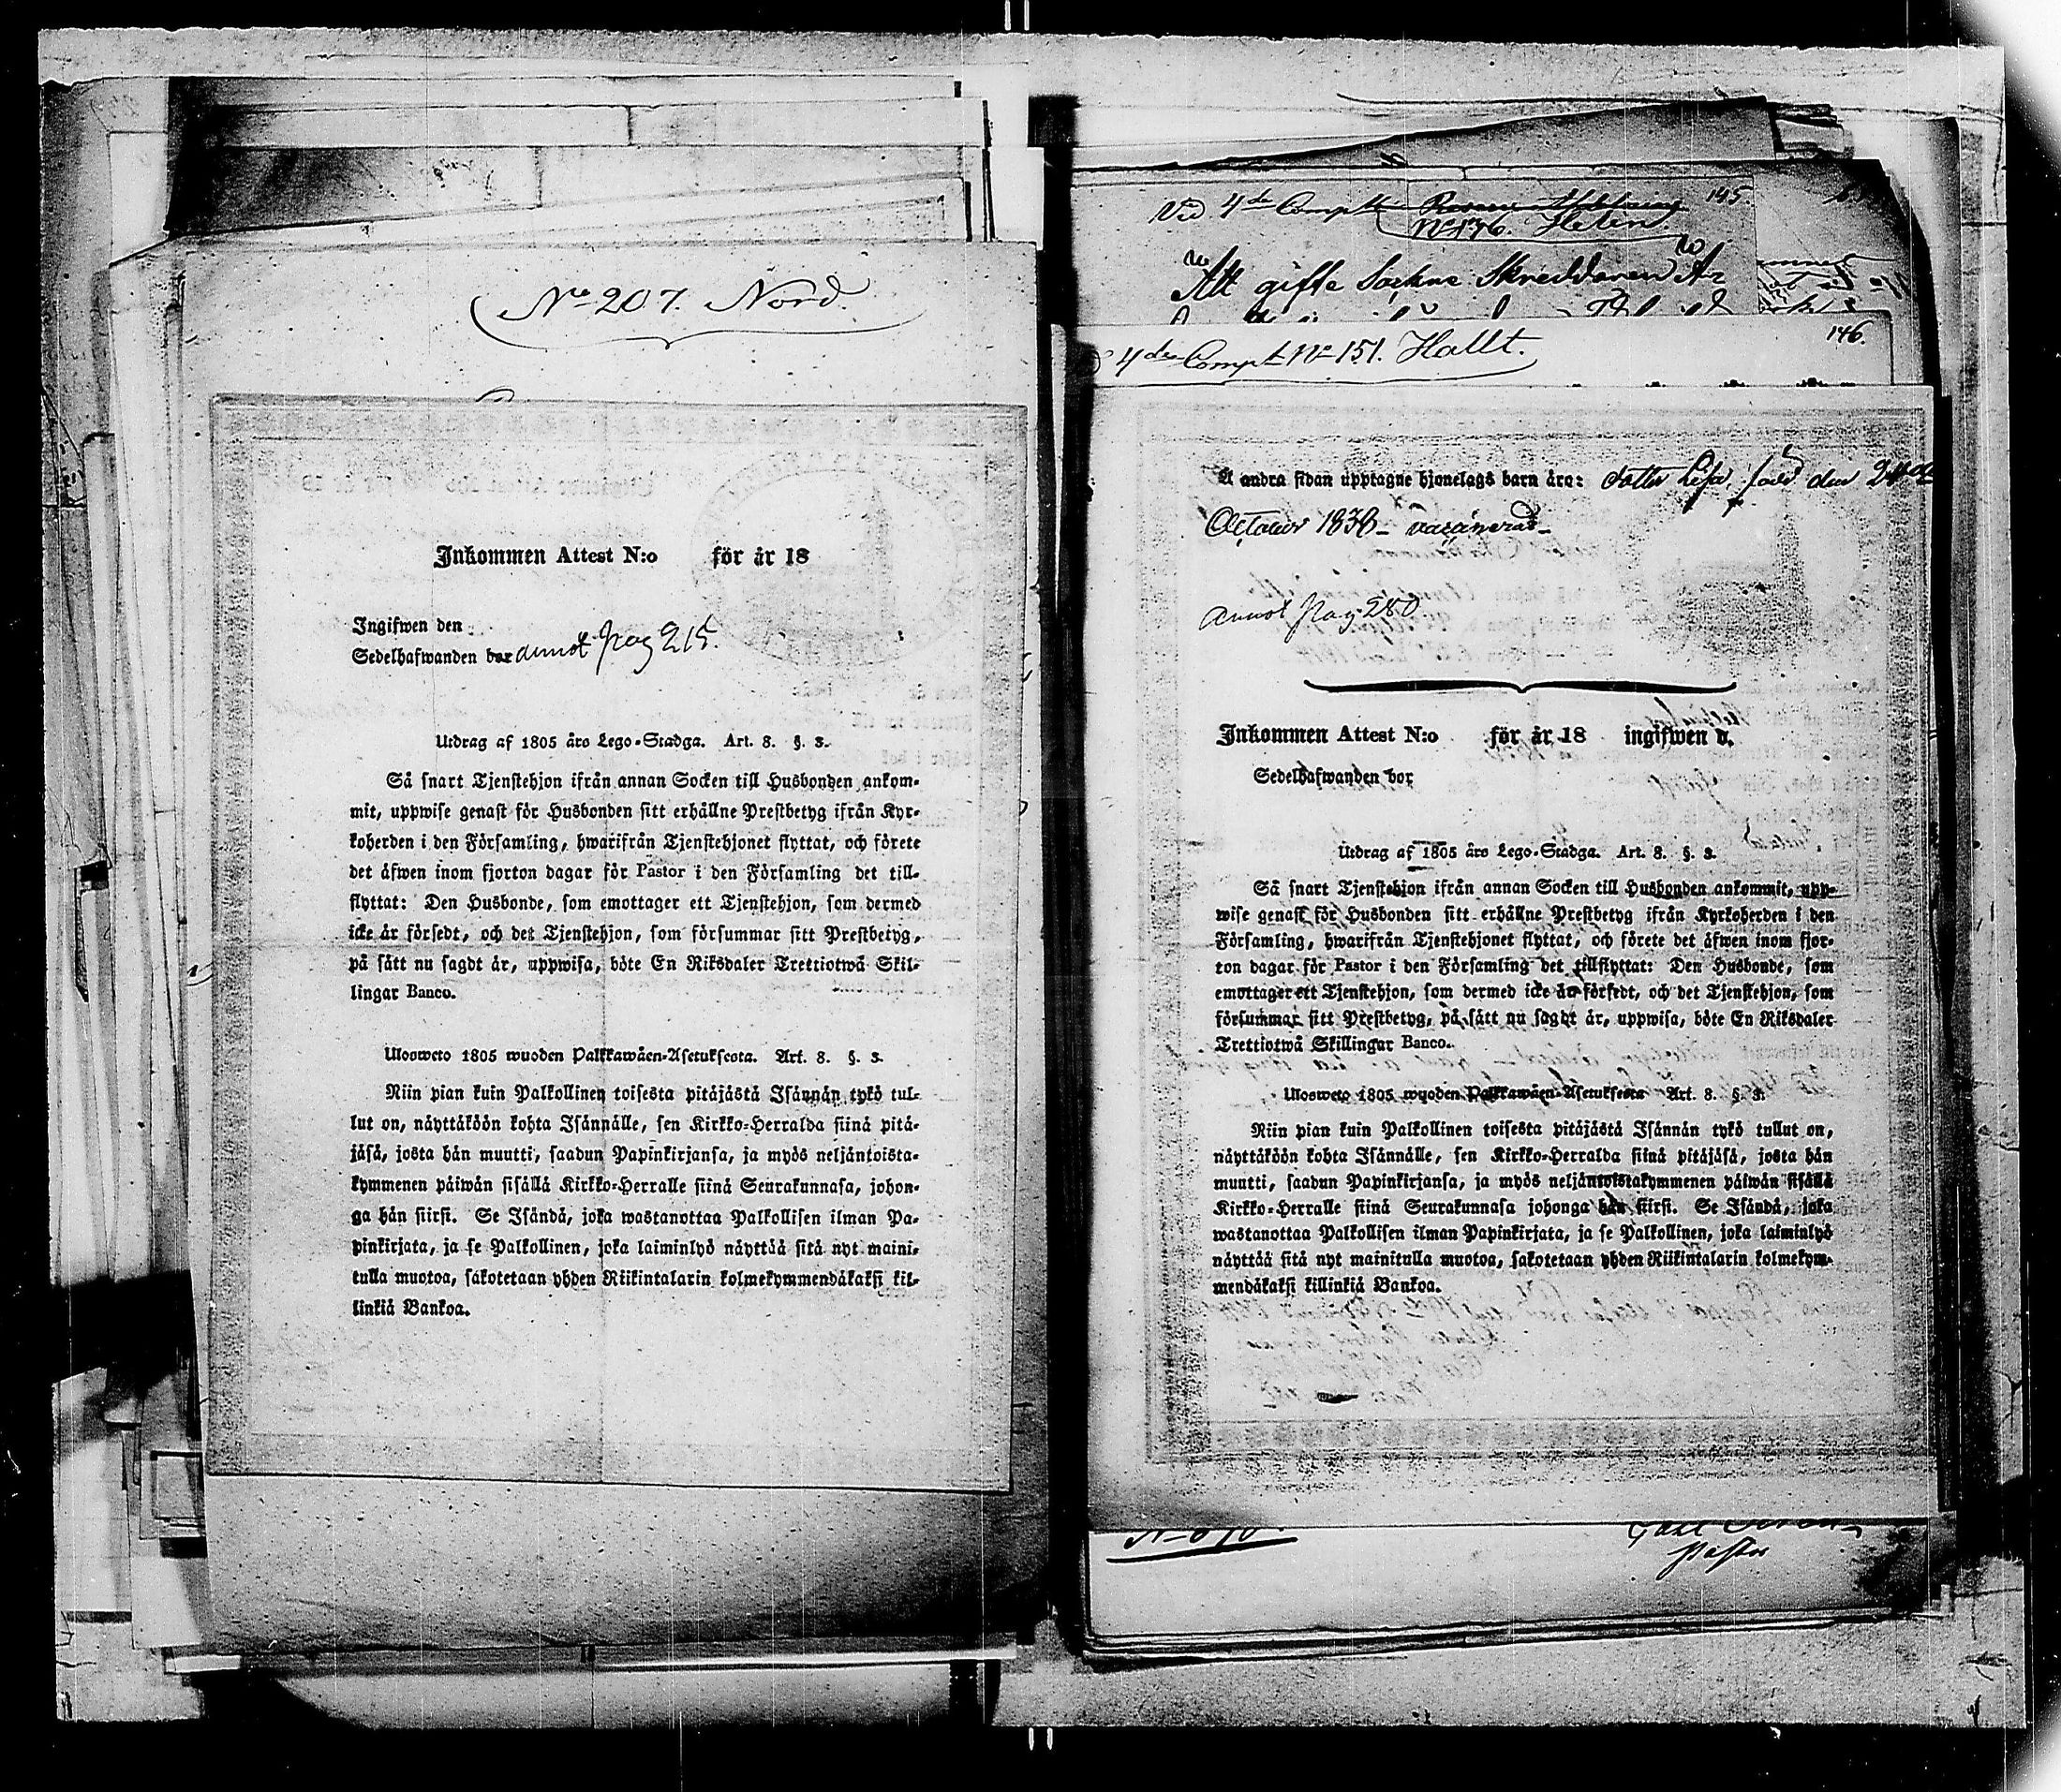 No 207. Nord
Inkommen Attest N:o för år 18
Ingifwen den
Sedelhafwanden bor annot pag 215.
Utdrag af 1805 års Lego-Stadga. Art. 8. §. 3.
Så snart Tjenstehjon ifrån annan Socken till Husbonden ankom-
mit, uppwise genast för Husbonden sitt erhållne Prestbetyg ifrån Kyr-
koherden i den Församling, hwarifrån Tjenstehjonet flyttat, och förete
det äfwen inom fjorton dagar för Pastor i den Församling det till-
flyttat: Den Husbonde, som emottager ett Tjenstehjon, som dermed
icke är försedt, och det Tjenstehjon, som försummar sitt Prestbetyg,
på sätt nu sagdt är, uppwisa, böte En Riksdaler Trettiotwå Skil-
lingar Banco.
Ulosweto 1805 wuoden Palkkawäen-Asetuksesta. Art. 8. §. 3.
Niin pian kuin Palkollinen toisesta pitäjästä Isännän tykö tul-
lut on, näyttäköön kohta Isännälle, sen Kirkko-Herralda siinä pitä-
jäsä, josta hän muutti, saadun Papinkirjansa, ja myös neljäntoista-
kymmenen päiwän sisällä Kirkko-Herralle siinä Seurakunnasa, johon-
ga hän siirsi. Se Isändä, joka wastanottaa Palkollisen ilman Pa-
pinkirjata, ja se Palkollinen, joka laiminlyö näyttää sitä nyt maini-
tulla muotoa, sakotetaan yhden Riikintalarin kolmekymmendäkaksi kil-
linkiä Bankoa.
Vid 4de Compt
No 176. Helen
145
Att gifte Sockne Skreddaren
4de Compt No 151. Hallt.
146.
Å andra sidan upptagne hjonelags barn äro: dotter Lisa född den 24de
October 1838 - vaccinerad -
annot pag 280
Inkommen Attest N:o för år 18 ingifwen d.
Sedelhafwanden bor
Utdrag af 1805 års Lego-Stadga. Art. 8. §. 3.
Så snart Tjenstehjon ifrån annan Socken till Husbonden ankommit, upp-
wise genast för Husbonden sitt erhållne Prestbetyg ifrån Kyrkoherden i den
Församling, hwarifrån Tjenstehjonet flyttat, och förete det äfwen inom fjor-
ton dagar för Pastor i den Församling det tillflyttat: Den Husbonde, som
emottager ett Tjenstehjon, som dermed icke är försedt, och det Tjenstehjon, som
försummar sitt Prestbetyg, på sätt nu sagdt är, uppwisa, böte En Riksdaler
Trettiotwå Skillingar Banco.
Ulosweto 1805 wuoden Palkkawäen-Asetuksesta Art. 8. §. 3.
Niin pian kuin Palkollinen toisesta pitäjästä Isännän tykö tullut on,
näyttäköön kohta Isännälle, sen Kirkko-Herralda siinä pitäjäsä, josta hän
muutti, saadun Papinkirjansa, ja myös neljäntoistakymmenen päiwän sisällä
Kirkko-Herralle siinä Seurakunnasa johonga hän siirsi. Se Isändä, joka
wastanottaa Palkollisen ilman Papinkirjata, ja se Palkollinen, joka laiminlyö
näyttää sitä nyt mainitulla muotoa, sakotetaan yhden Riikintalarin kolmekym-
mendäkaksi killinkiä Bankoa.
Pastor